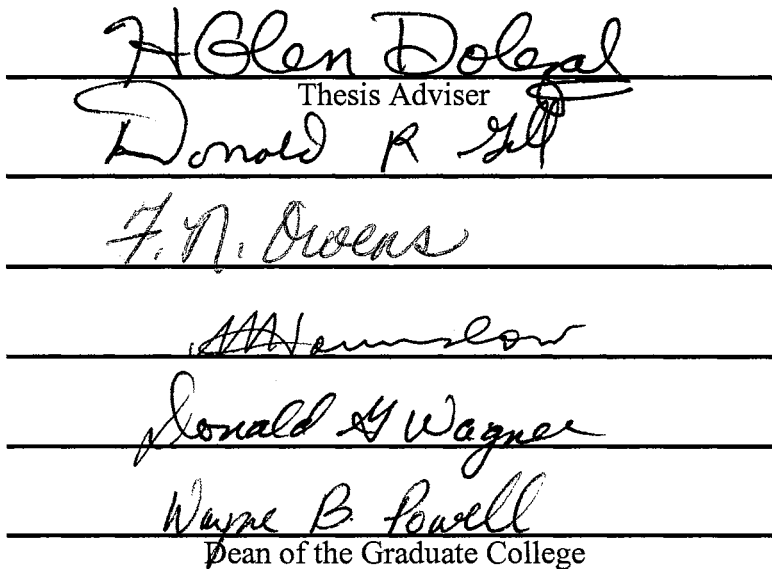 H Glen Dolezal
Thesis Adviser
Donald R Gill
F. N. Owens
Donald G Wagner
Wayne B. Powell
Dean of the Graduate College